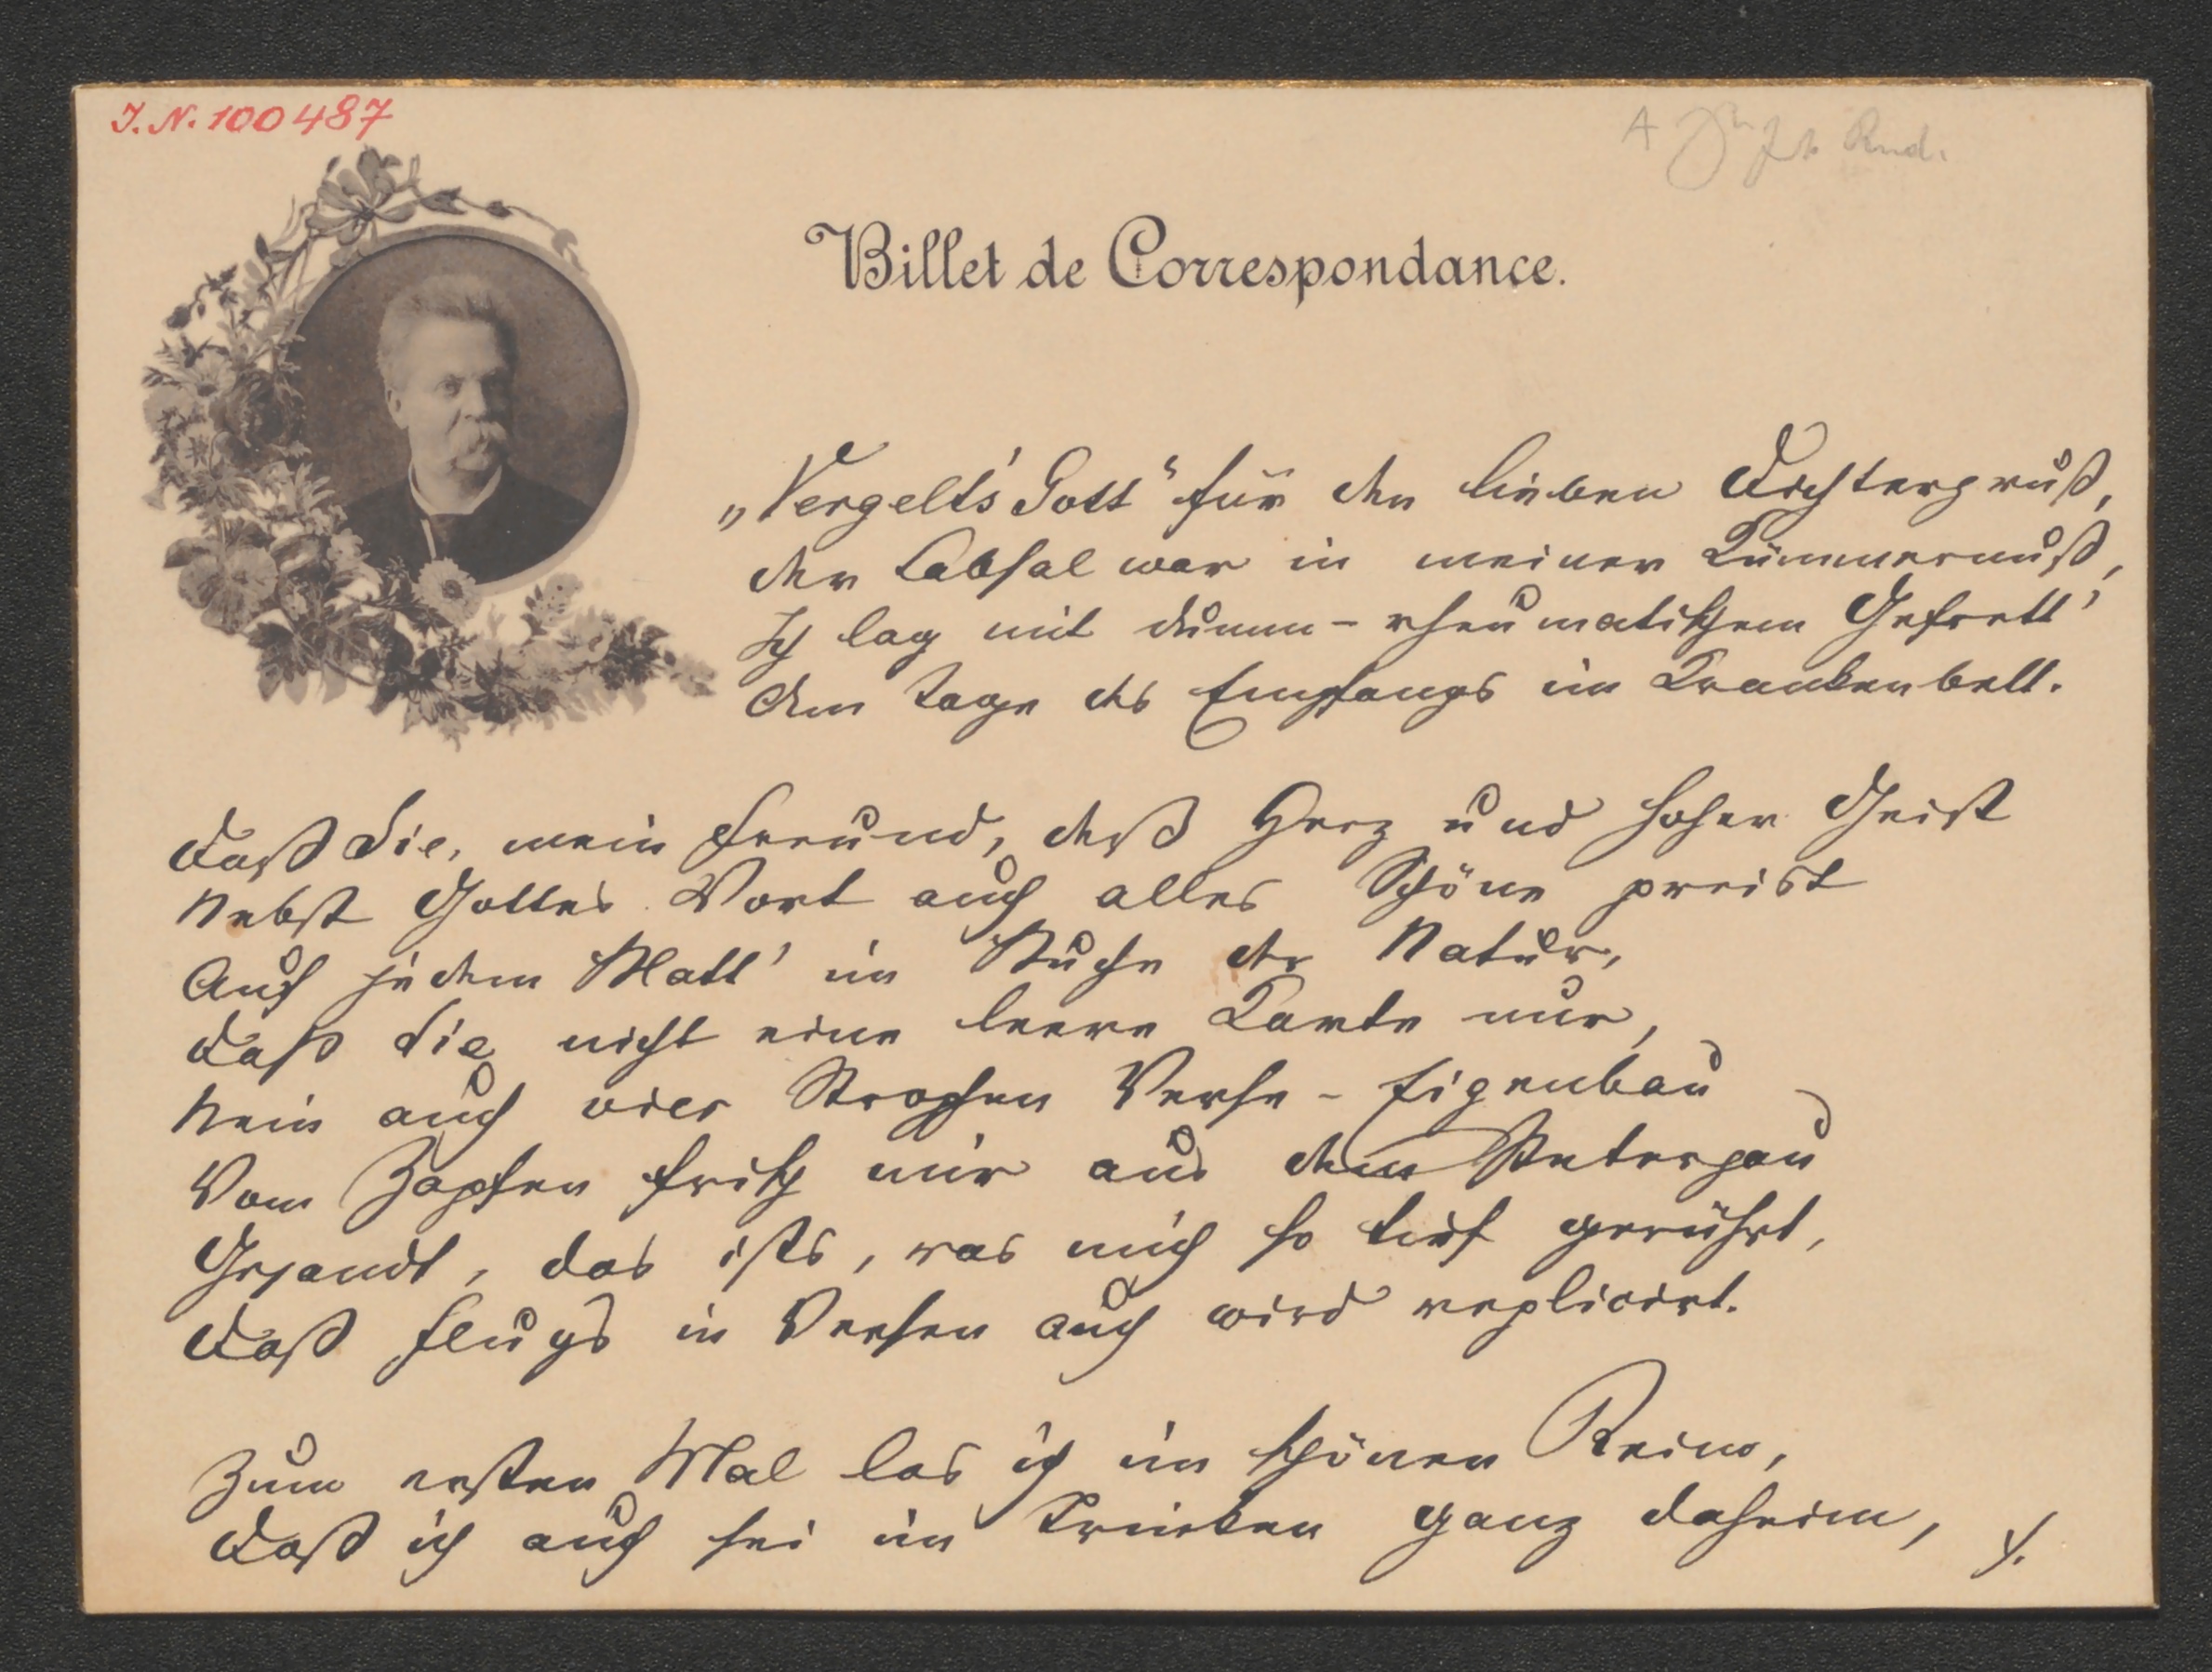 I. N. 100487
A
Rud.
Billet de Correspondance.
„Vergelt's Gott“ für den lieben Dichtergruß,
der Labsal war in meiner Kümmernuß,
Ich lag mit dumm-rheumatischem Gefrett'
Am Tage des Empfangs im Krankenbett.
Daß Sie, mein Freund, deß Herz und hoher Geist
Nebst Gottes Wort auch alles Schöne preist
Auf jedem Blatt' im Buche der Natur,
Daß Sie nicht eine leere Karte nur,
Nein auch vier Strophen Verse-Eigenbau
Vom Zapfen frisch mir aus dem Petersgau
Gesandt, das ists, was mich so tief gerührt,
Daß flugs in Versen auch wird replicirt.
Zum ersten Mal las ich im schönen Reim,
Daß ich auch sei im Trinken ganz daheim, ./.